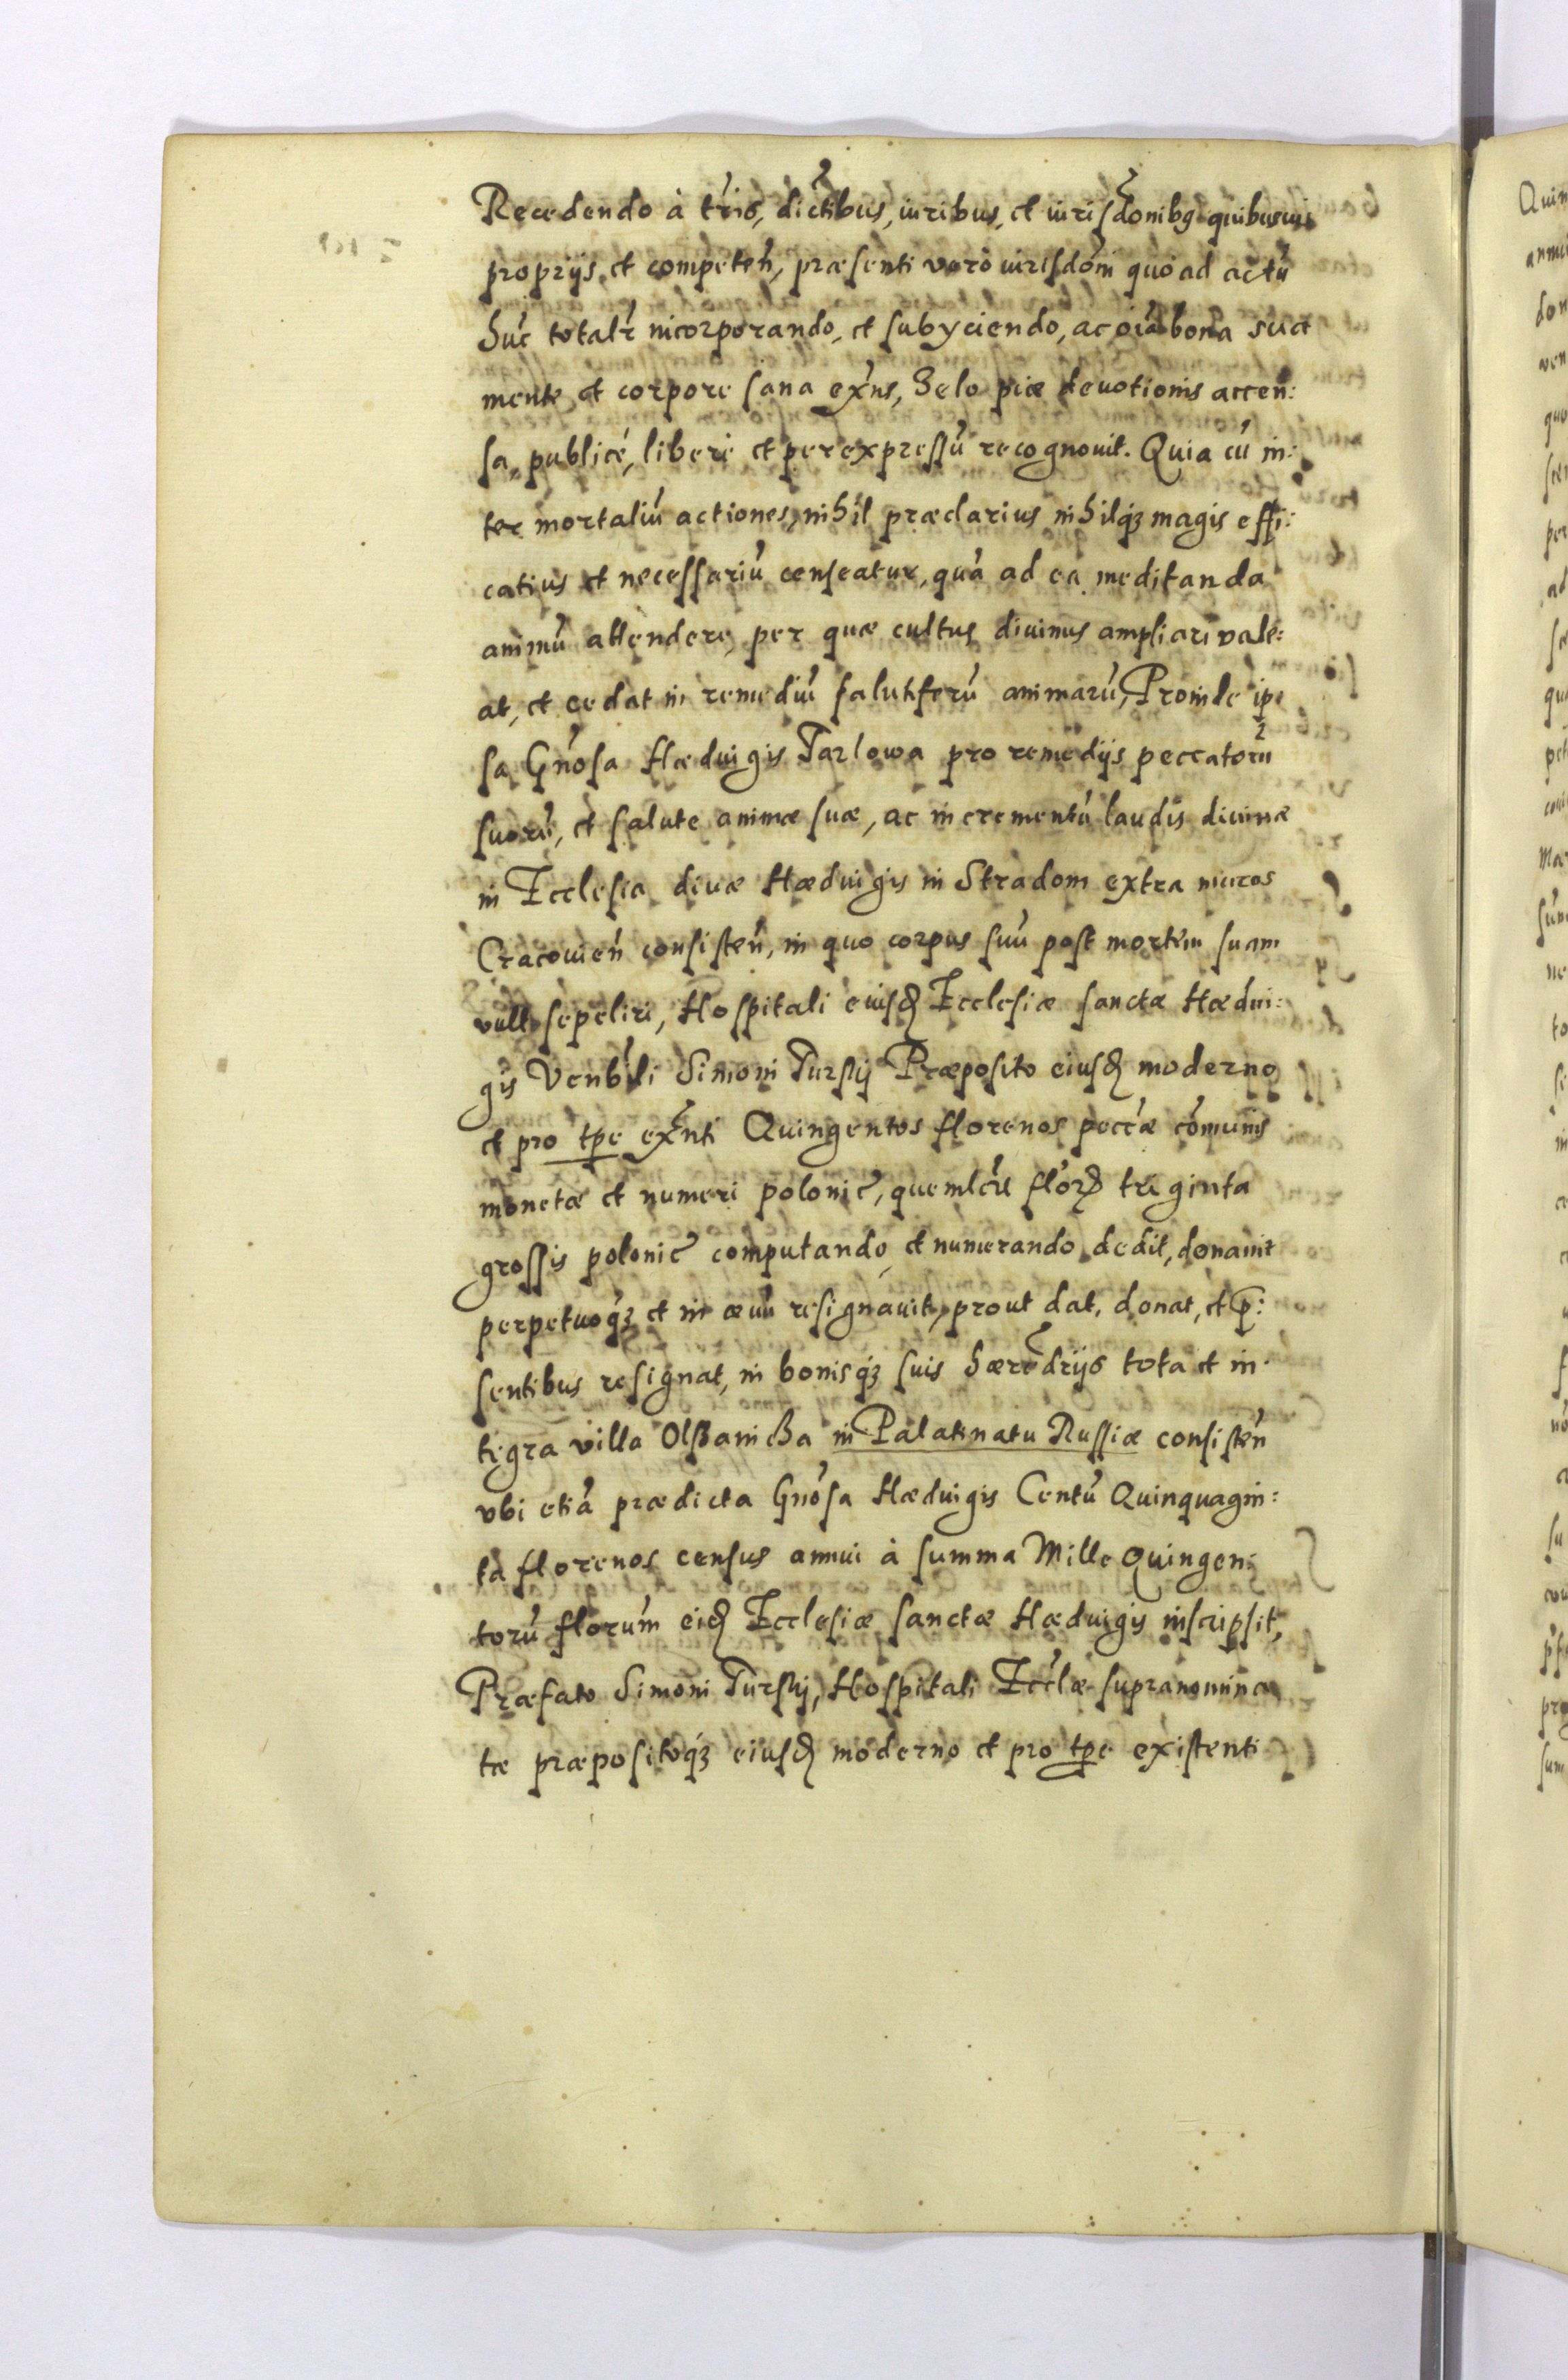 Recedendo à tr̃is, dictĩbus, iuribus, et iurisdõnibg quibusuis
proprijs, et competeñ, præsenti vero iurisdõni quo ad actũ
hũc totalr̃ incorporando, et subyciendo, ac oĩa bona sua
mente et corpore sana exñs, Zelo piæ deuotionis accen:
sa, publicé, liberè et per expressũ recognouit. Quia cũ in:
ter mortaliũ actiones, nihil præclarius nihilq3 magis effi:
catius et necessariũ censeatur, quã ad ea meditanda
animũ attendere, per quæ cultus diuinus ampliari vale:
at, et cedat in remediũ salutiferũ animarũ, Proinde ip:
sa Gñosa Hæduigis Tarlowa pro remedijs peccatorũ
suorũ, et salute animæ suæ, ac incrementũ laudis diuinæ
in Ecclesia diuæ Hæduigis in Stradom extra muros
Cracouieñ consisteñ, in quo corpus suũ post mortem suam
vult sepeliri, Hospitali eiusd Ecclesiæ sanctæ Hædui:
gis Venbĩli Simoni Turskij Præposito eiusd moderno
et pro tp̃e exñti Quingentos florenos pecc̃æ cõmunis
monetæ et numeri polonic̃, quemlibet flor triginta
grossis polonic̃ computando, et numerando dedit, donauit
perpetuoq3 et in æuũ resignauit, prout dat, donat, et p̃:
sentibus resignat, in bonisq3 suis hæred̃rijs tota et in:
tegra villa Olssanicza in Palatinatu Russiæ consisteñ
vbi etiã prædicta Gñosa Hæduigis Centũ Quinquagin:
ta florenos census annui à summa Mille Quingen:
torũ florum eid Ecclesiæ sanctæ Hæduigis inscripsit,
Præfato Simoni Turskij, Hospitali Eccl̃æ supranomina
tæ præpositoq3 eiusd moderno et pro tp̃e existenti